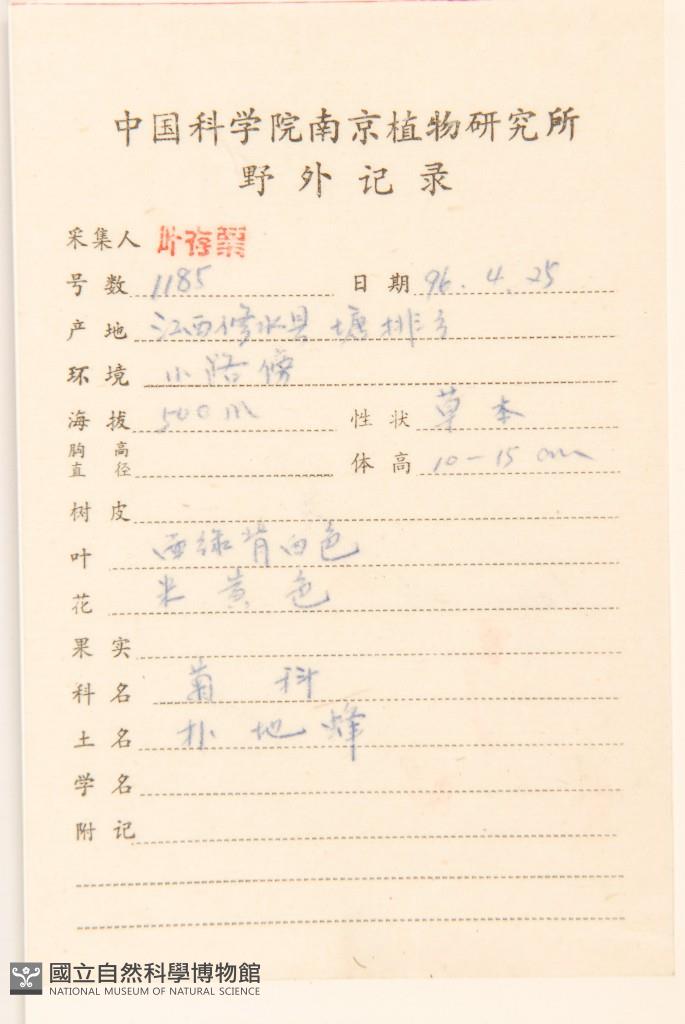 中国科学院南京植物研究所
野外记录
采集人 叶存粟
号数 1185 日期 96.4.25
产地 江西修水县 塘排
环境 小路傍
海拔 500m 性状 草本
胸高直径 体高 10-15cm
树皮
叶 面绿背白色
花 米黄色
果实
科名 菊科
土名 扑地烽
学名
附记
國立自然科學博物館
NATIONAL MUSEUM OF NATURAL SCIENCE